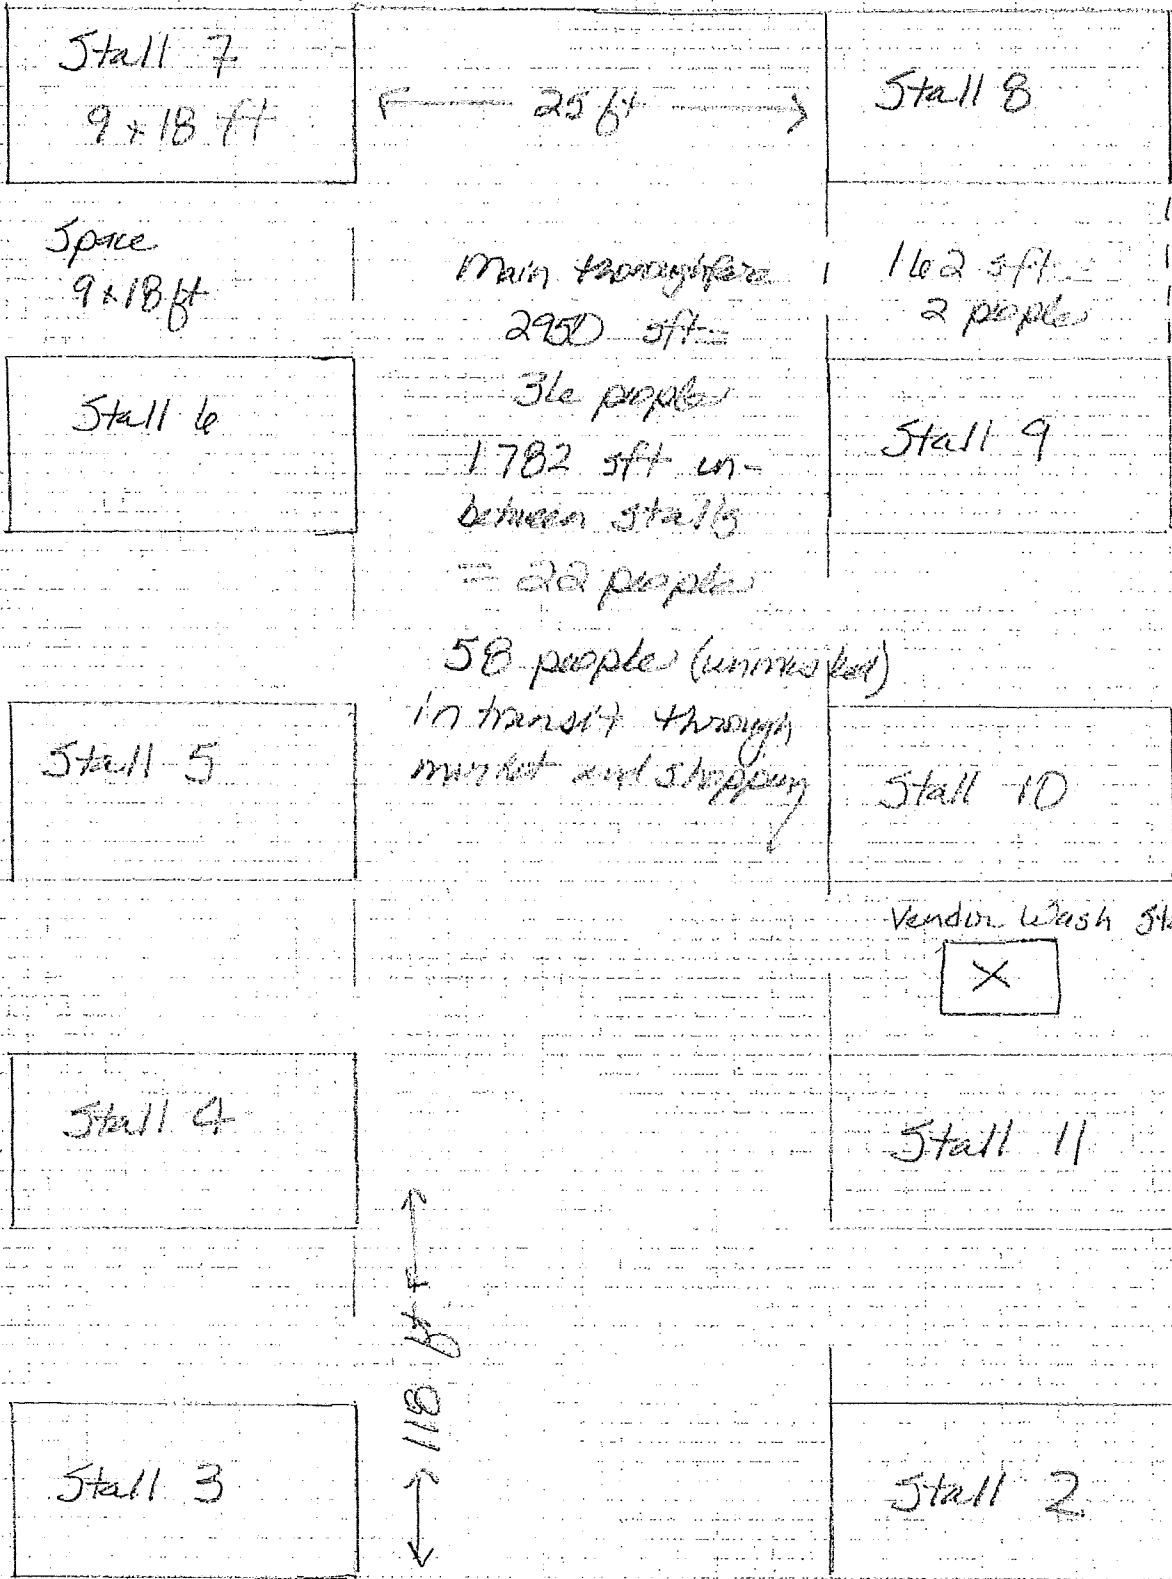 Stall 7
9 x 18 ft
← 25 ft →
Stall 8
Space
9 x 18 ft
Main thoroughfare
2950 sft =
36 people
1782 sft in-
between stalls
= 22 people
58 people (unmasked)
in transit through
market and shopping
162 sft =
2 people
Stall 6
Stall 9
Stall 5
Stall 10
Vendor Wash Sta
X
Stall 4
Stall 11
← 118 ft →
Stall 3
Stall 2